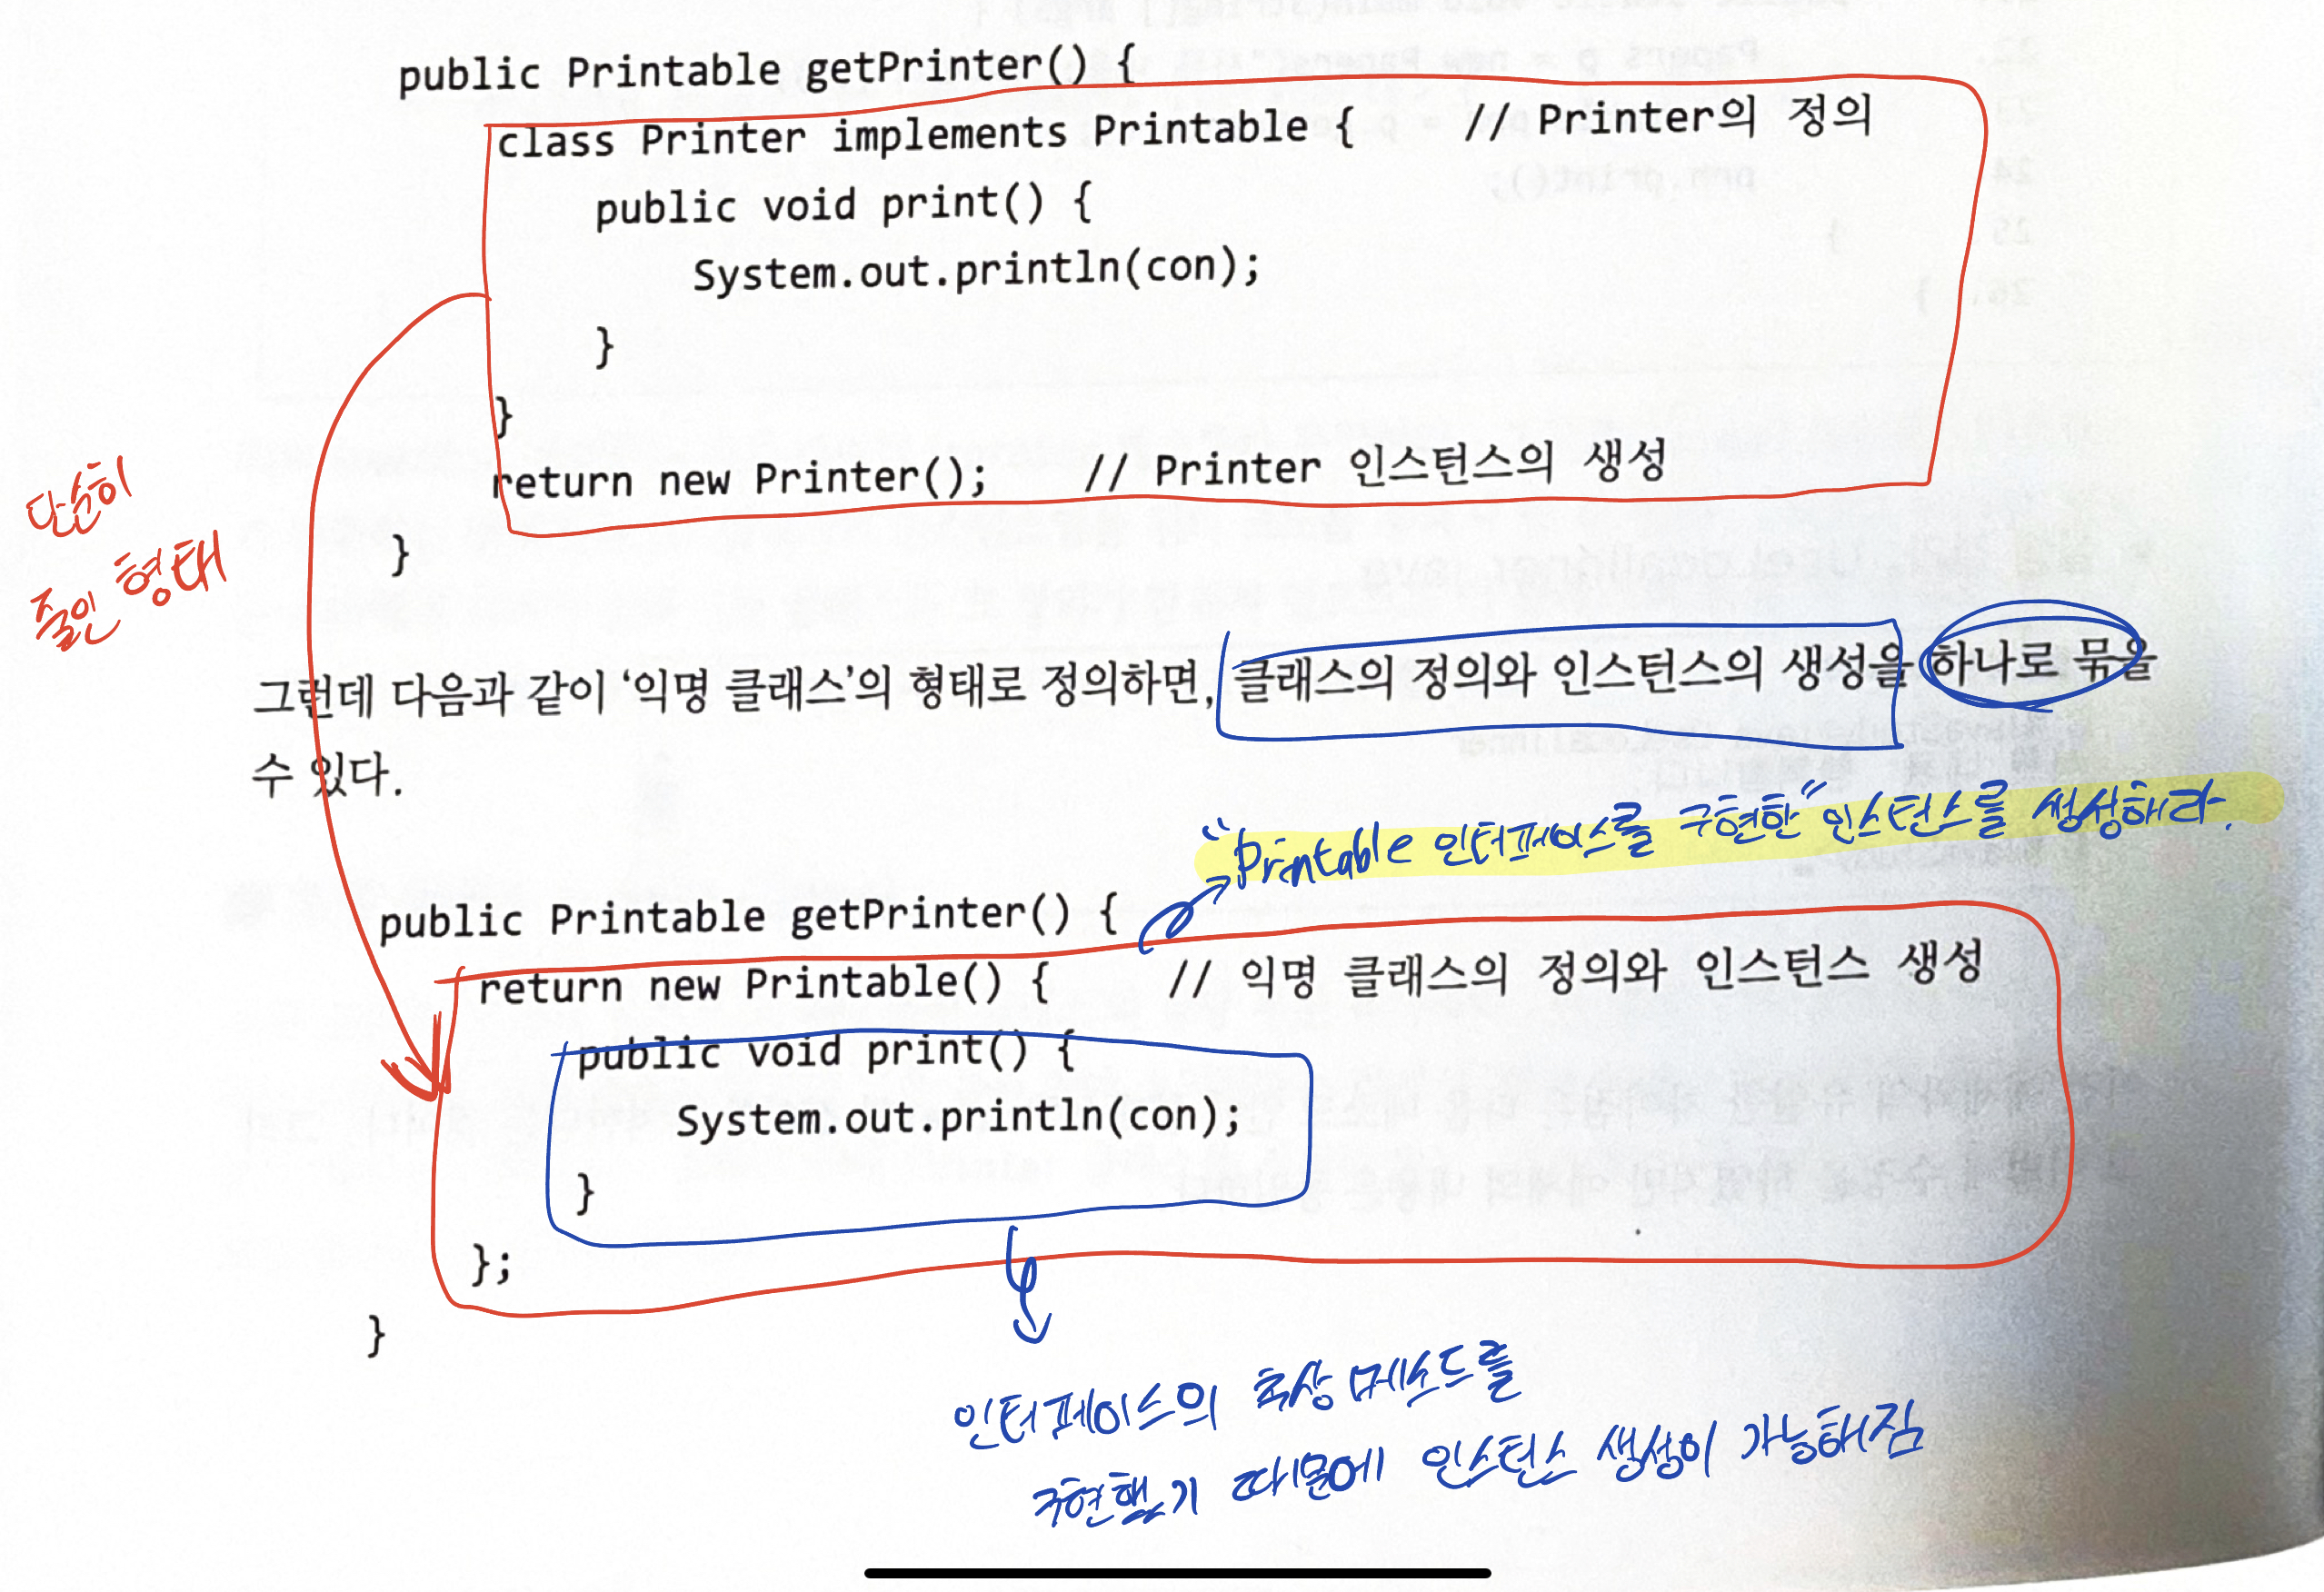 public Printable getPrinter() {
class Printer implements Printable {    // Printer의 정의
public void print() {
System.out.println(con);
}
}
return new Printer();    // Printer 인스턴스의 생성
}
단순히
줄인 형태
그런데 다음과 같이 ‘익명 클래스’의 형태로 정의하면, 클래스의 정의와 인스턴스의 생성을 하나로 묶을
수 있다.
“Printable 인터페이스를 구현한” 인스턴스를 생성해라.
public Printable getPrinter() {
return new Printable() {    // 익명 클래스의 정의와 인스턴스 생성
public void print() {
System.out.println(con);
}
};
}
인터페이스의 추상 메소드를
구현했기 때문에 인스턴스 생성이 가능해짐